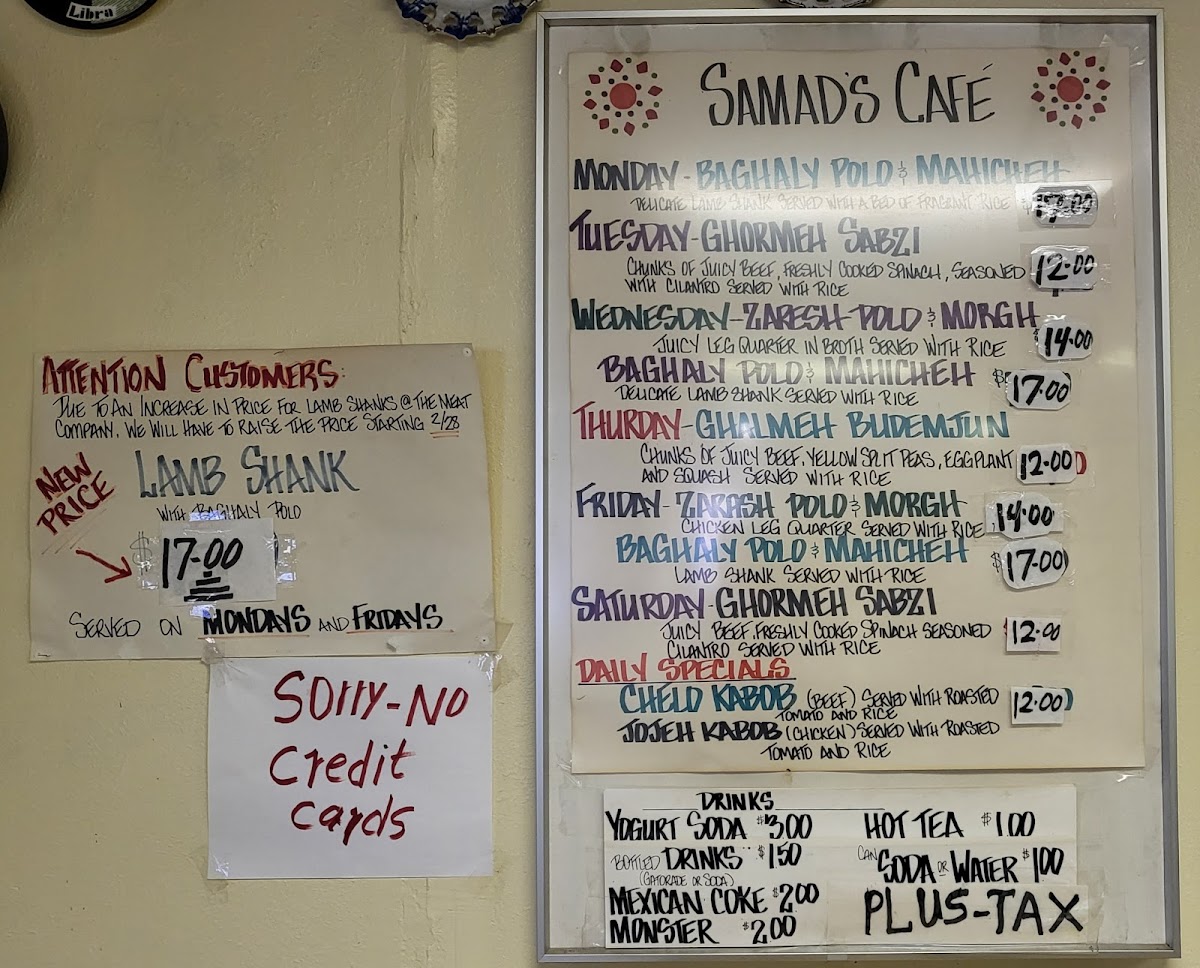 Libra
ATTENTION CUSTOMERS:
DUE TO AN INCREASE IN PRICE FOR LAMB SHANKS @ THE MEAT
COMPANY. WE WILL HAVE TO RAISE THE PRICE STARTING 2/28
NEW
PRICE
LAMB SHANK
WITH BAGHALY POLO
$17.00
SERVED ON MONDAYS AND FRIDAYS
SORRY-NO
Credit
cards
SAMAD'S CAFÉ
MONDAY - BAGHALY POLO & MAHICHEH
DELICATE LAMB SHANK SERVED WITH A BED OF FRAGRANT RICE $17.00
TUESDAY - GHORMEH SABZI
CHUNKS OF JUICY BEEF, FRESHLY COOKED SPINACH, SEASONED 12.00
WITH CILANTRO SERVED WITH RICE
WEDNESDAY - ZARESH POLO & MORGH
JUICY LEG QUARTER IN BROTH SERVED WITH RICE 14.00
BAGHALY POLO & MAHICHEH $17.00
DELICATE LAMB SHANK SERVED WITH RICE
THURDAY - GHALMEH BUDEMJUN
CHUNKS OF JUICY BEEF, YELLOW SPLIT PEAS, EGGPLANT 12.00
AND SQUASH SERVED WITH RICE
FRIDAY - ZARASH POLO & MORGH 14.00
CHICKEN LEG QUARTER SERVED WITH RICE
BAGHALY POLO & MAHICHEH $17.00
LAMB SHANK SERVED WITH RICE
SATURDAY - GHORMEH SABZI
JUICY BEEF, FRESHLY COOKED SPINACH SEASONED 12.00
CILANTRO SERVED WITH RICE
DAILY SPECIALS
CHELO KABOB (BEEF) SERVED WITH ROASTED 12.00
TOMATO AND RICE
JOJEH KABOB (CHICKEN) SERVED WITH ROASTED
TOMATO AND RICE
DRINKS
YOGURT SODA $3.00
BOTTLED DRINKS $1.50
(GATORADE OR SODA)
MEXICAN COKE $2.00
MONSTER $2.00
HOT TEA $1.00
CAN SODA OR WATER $1.00
PLUS-TAX